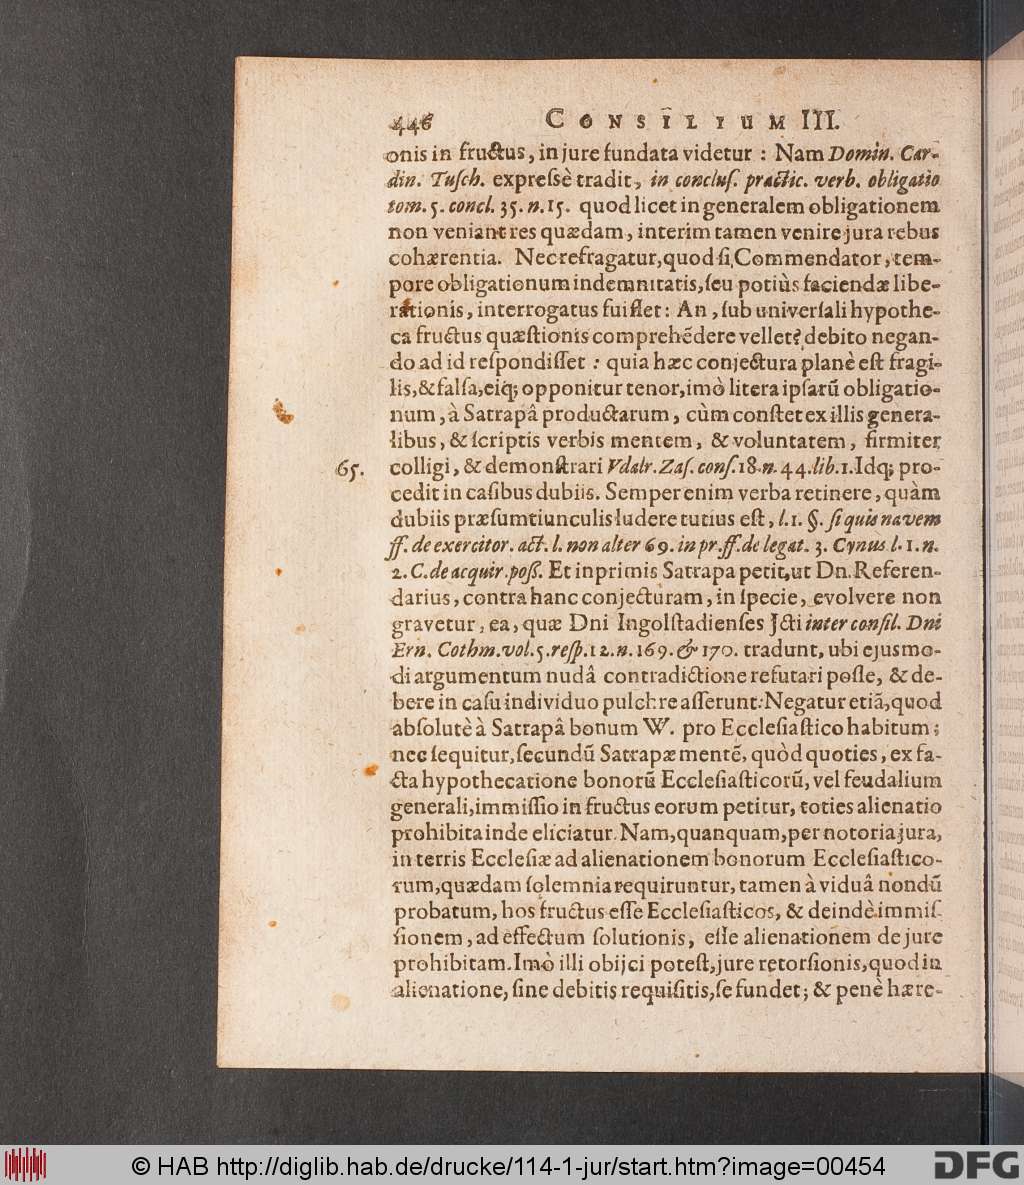 446 CONSILIUM III.
onis in fructus, in jure fundata videtur : Nam Domin. Car-
din. Tuſch. expreſsè tradit, in concluſ. practic. verb. obligatio
tom. 5. concl. 35. n. 15. quod licet in generalem obligationem
non veniant res quædam, interim tamen venire jura rebus
cohærentia. Nec refragatur, quod ſi Commendator, tem-
pore obligationum indemnitatis, ſeu potiùs faciendæ libe-
rationis, interrogatus fuiſſet: An, ſub univerſali hypothe-
ca fructus quæſtionis comprehẽdere vellet? debito negan-
do ad id reſpondiſſet : quia hæc conjectura planè eſt fragi-
lis, & falſa, eiq; opponitur tenor, imò litera ipſarũ obligatio-
num, à Satrapâ productarum, cùm conſtet ex illis genera-
libus, & ſcriptis verbis mentem, & voluntatem, firmiter
65. colligi, & demonſtrari Vdalr. Zaſ. conſ. 18. n. 44. lib. 1. Idq; pro-
cedit in caſibus dubiis. Semper enim verba retinere, quàm
dubiis præſumtiunculis ludere tutius eſt, l. 1. §. ſi quis navem
ff. de exercitor. act. l. non alter 69. in pr. ff. de legat. 3. Cynus l. 1. n.
2. C. de acquir. poſſ. Et inprimis Satrapa petit, ut Dn. Referen-
darius, contra hanc conjecturam, in ſpecie, evolvere non
gravetur, ea, quæ Dni Ingolſtadienſes Jcti inter conſil. Dni
Ern. Cothm. vol. 5. reſp. 12. n. 169. & 170. tradunt, ubi ejusmo-
di argumentum nudâ contradictione refutari poſſe, & de-
bere in caſu individuo pulchre aſſerunt: Negatur etiã, quod
abſolutè à Satrapâ bonum W. pro Eccleſiaſtico habitum;
nec ſequitur, ſecundũ Satrapæ mentẽ, quòd quoties, ex fa-
cta hypothecatione bonorũ Eccleſiaſticorũ, vel feudalium
generali, immiſſio in fructus eorum petitur, toties alienatio
prohibita inde eliciatur. Nam, quanquam, per notoria jura,
in terris Eccleſiæ ad alienationem bonorum Eccleſiaſtico-
rum, quædam ſolemnia requiruntur, tamen à viduâ nondũ
probatum, hos fructus eſſe Eccleſiaſticos, & deindè immiſ-
ſionem, ad effectum ſolutionis, eſſe alienationem de jure
prohibitam. Imò illi obijci poteſt, jure retorſionis, quod in
alienatione, ſine debitis requiſitis, ſe fundet; & penè hære-
© HAB http://diglib.hab.de/drucke/114-1-jur/start.htm?image=00454
DFG